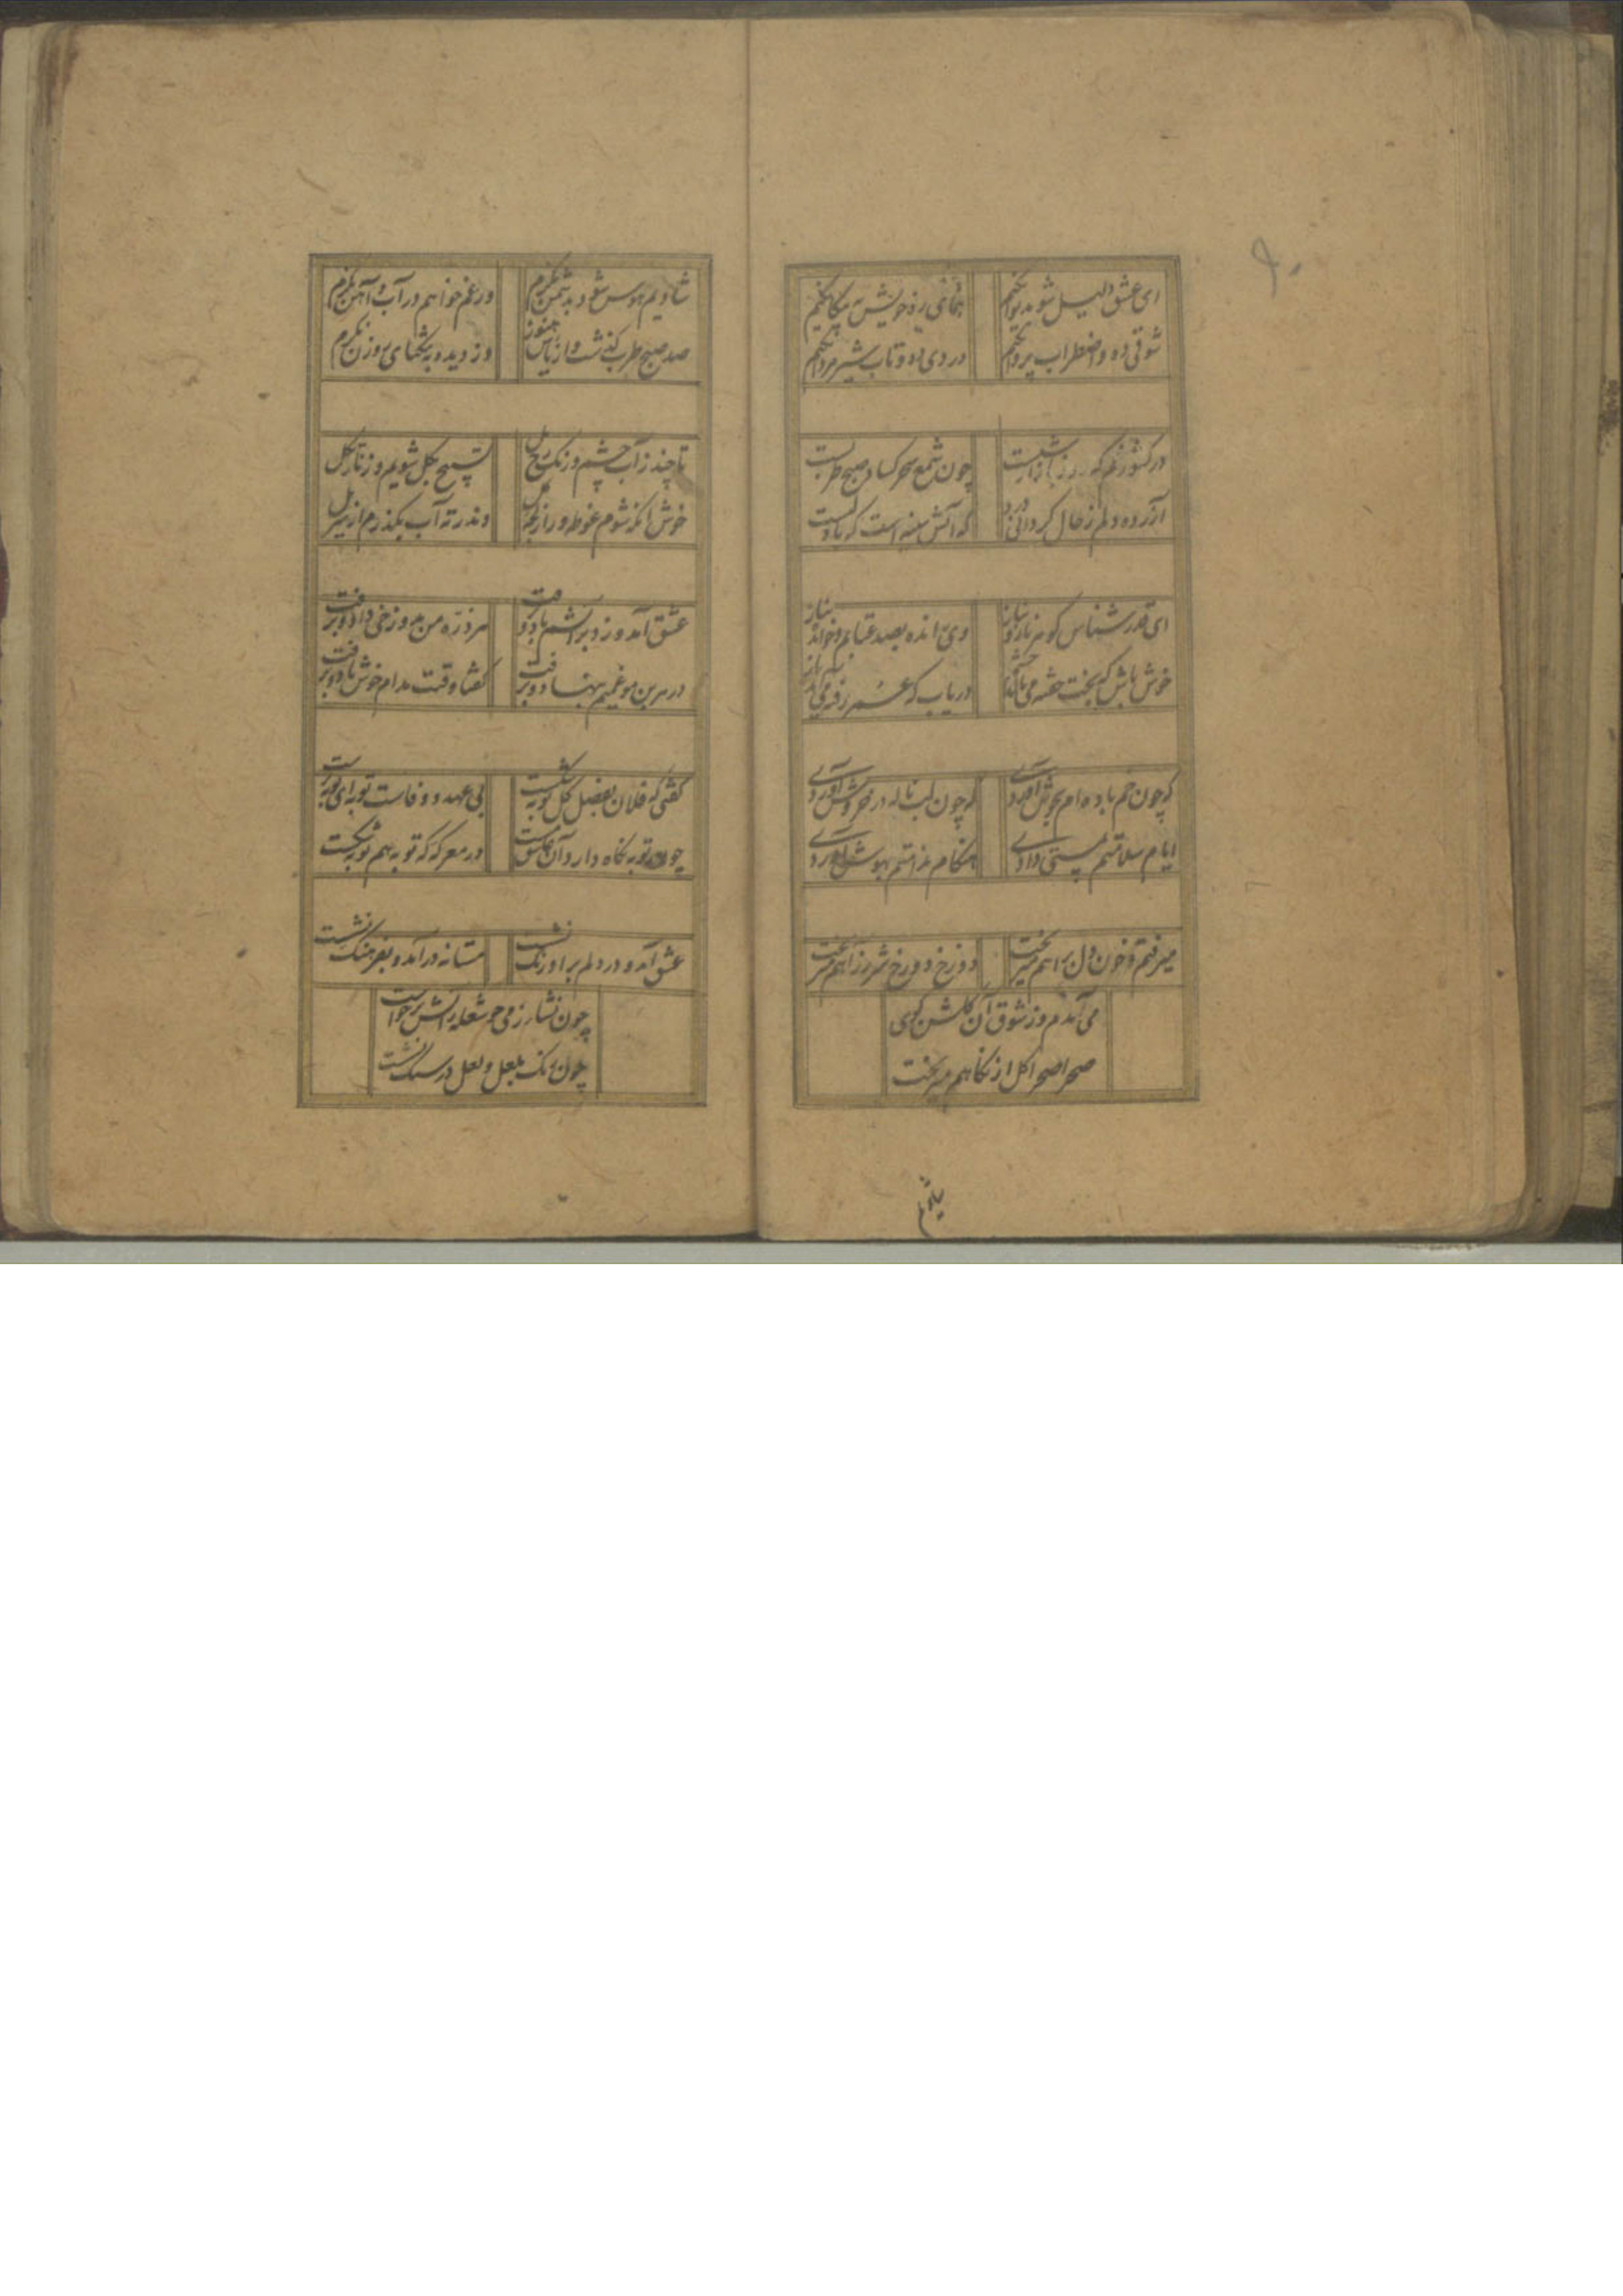 ۹۰
ای عشق دلیل شو بدیوانگیم
بنمای ره خویش به بیگانگیم
شوقی ده و اضطراب پروانگیم
دردی ده و تاب شیر مردانگیم
در کشور غم که روز بازار شبست
چون شمع سحر کساد صبح طربست
آزرده دلم ز حال کردانی
که آتش سینه است که
ای قدر شناس گوهر ناز و نیاز
وی رانده بصد عتاب و خوانده بناز
خوش باش که بخت خفته می
دریاب که عمر رفته می باز
که چون خم باده ام بجوش آوردی
که چون لب ناله در خروش آوردی
ایام سلامتم بمستی دادی
هنگام ندامتم بهوش آوردی
میرفتم و خون دل براهم میریخت
دوزخ دوزخ شرر ز آهم میریخت
می آمدم و ز شوق آن گلشن کوی
صحرا صحرا گل از نگاهم میریخت
شادیم
شادیم هوس شود بدشمن نگرم
ور غم خواهم در آب و آهن نگرم
صد صبح طرب گذشت و از یاس هنوز
دزدیده بر وزن نگرم
تا چند ز آب چشم و رنگ رخ دل
تسبیح بگل شویم و زنار بگل
خوش آنکه شوم غوطه ور از
وندر ته آب بگذرم از سر پل
عشق آمد و زد بر آتشم باد و برفت
هر ذره من بدوزخی داد و برفت
در هر بن مو غمیم بنهاد و برفت
گفتا وقتت مدام خوش باد و برفت
گفتی که فلان بفصل گل توبه شکست
بی عهد و وفاست توبه ای توبه پرست
چون توبه نگاه دارد آن عاشق مست
در معرکه که توبه هم توبه شکست
عشق آمد و در دلم بر اورنگ نشست
مستانه در آمد و بفرهنگ نشست
چون نشأه ز می چو شعله ز آتش برخواست
چون رنگ بلعل و لعل در سنگ نشست